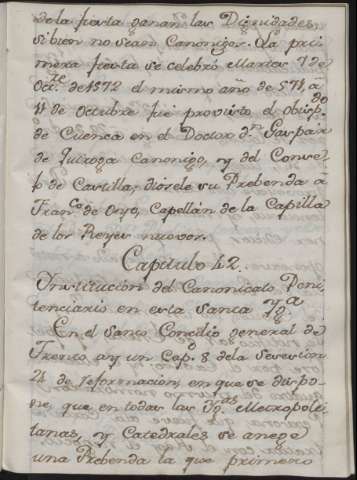 de la fiesta ganan las Dignidades,
si bien no sean Canonigos. La pri
mera fiesta se celebró Martes 7 de
Oct.re de 1572 el mismo año de 571, a
11 de octubre fue proveido el obisp.do
de Cuenca en el Doctor d.n Gaspar
de Quiroga Canonigo, y del Conse-
jo de Castilla; diosele su Prebenda a
Fran.co de Oryo, Capellán de la Capilla
de los Reyes nuevos.
Capitulo 42.
Institucion del Canonicato Peni
tenciario en esta santa Yg.a
En el santo Concilio general de
Trento ay un Cap.o 8 de la Session
24 de reformacion, en que se dispo-
ne, que en todas las Yg.as Metropoli
tanas, y Catedrales se anege
una Prebenda la que primero